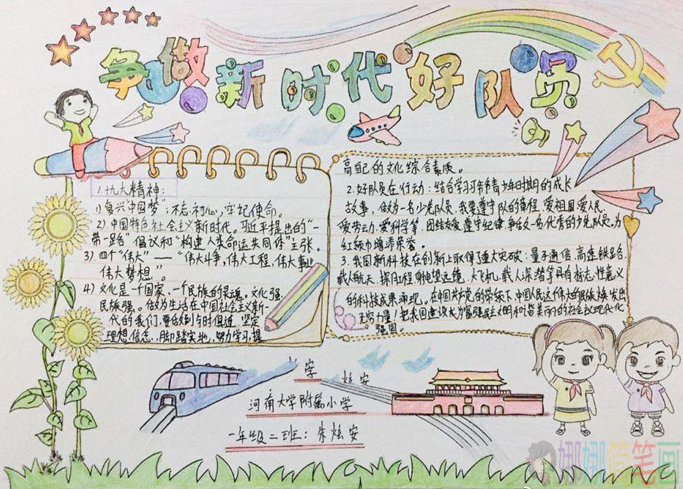 争做新时代好队员
1.十九大精神:
1)复兴"中国梦":不忘初心,牢记使命。
2)中国特色社会主义新时代。习近平提出的"一
带一路"倡议和"构建人类命运共同体"主张。
3)四个"伟大"——"伟大斗争,伟大工程,伟大事业
伟大梦想"。
4)文化是一个国家、一个民族的灵魂。文化强
民族强。做为生活在中国社会主义新时
代的我们,要做到与时俱进,坚定
理想信念,脚踏实地,努力学习,提
高自己的文化综合素质。
2.好队员在行动:结合学习习爷爷青少年时期的成长
故事,做为一名少先队员,我要遵守队的章程,爱祖国爱人民
爱劳动,爱科学,团结友爱遵守纪律,争做一名优秀的少先队员,为
红领巾增添荣誉。
3.我国新科技在创新上取得重大突破:量子通信,高速铁路,
载人航天,探月工程,射电望远镜,大飞机,载人深潜等具有标志性意义
的科技成果涌现。在中国共产党的带领下,中国人民这伟大的民族焕发出
无穷力量!把我国建设成为富强民主文明和谐美丽的社会主义现代化
强国。
河南大学附属小学
一年级二班:朱炫安
娜娜简笔画